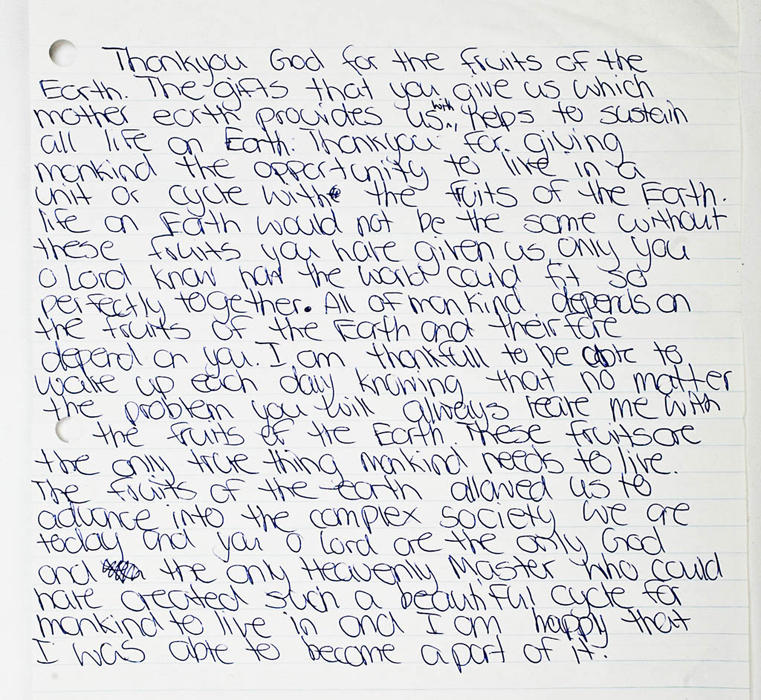 Thankyou God for the fruits of the
Earth. The gifts that you give us which
mother earth provides us with, helps to sustain
all life on Earth. Thankyou for giving
mankind the opportunity to live in a
unit or cycle with the fuits of the Earth.
life on Earth would not be the same without
these fruits you have given us only you
o Lord know how the world could fit so
perfectly together. All of mankind depends on
the fruits of the Earth and theirfore
depend on you. I am thankfull to be able to
wake up each day knowing that no matter
the problem you will always leave me with
the fruits of the Earth. These fruits are
the only true thing mankind needs to live.
The fruits of the earth allowed us to
advance into the complex society we are
today and you o Lord are the only God
and the only Heavenly Master who could
have created such a beautiful cycle for
mankind to live in and I am happy that
I was able to become apart of it.